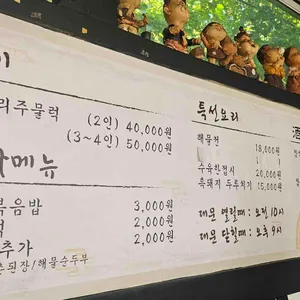 이
리주물럭 (2인) 40,000원
(3~4인) 50,000원
메뉴
볶음밥 3,000원
2,000원
추가 2,000원
된장/해물순두부
특선요리
해물전 18,000원
수육한접시 20,000원
흑돼지 두루치기 15,000원
대문 열릴때: 오전 10시
대문 닫힐때: 오후 9시